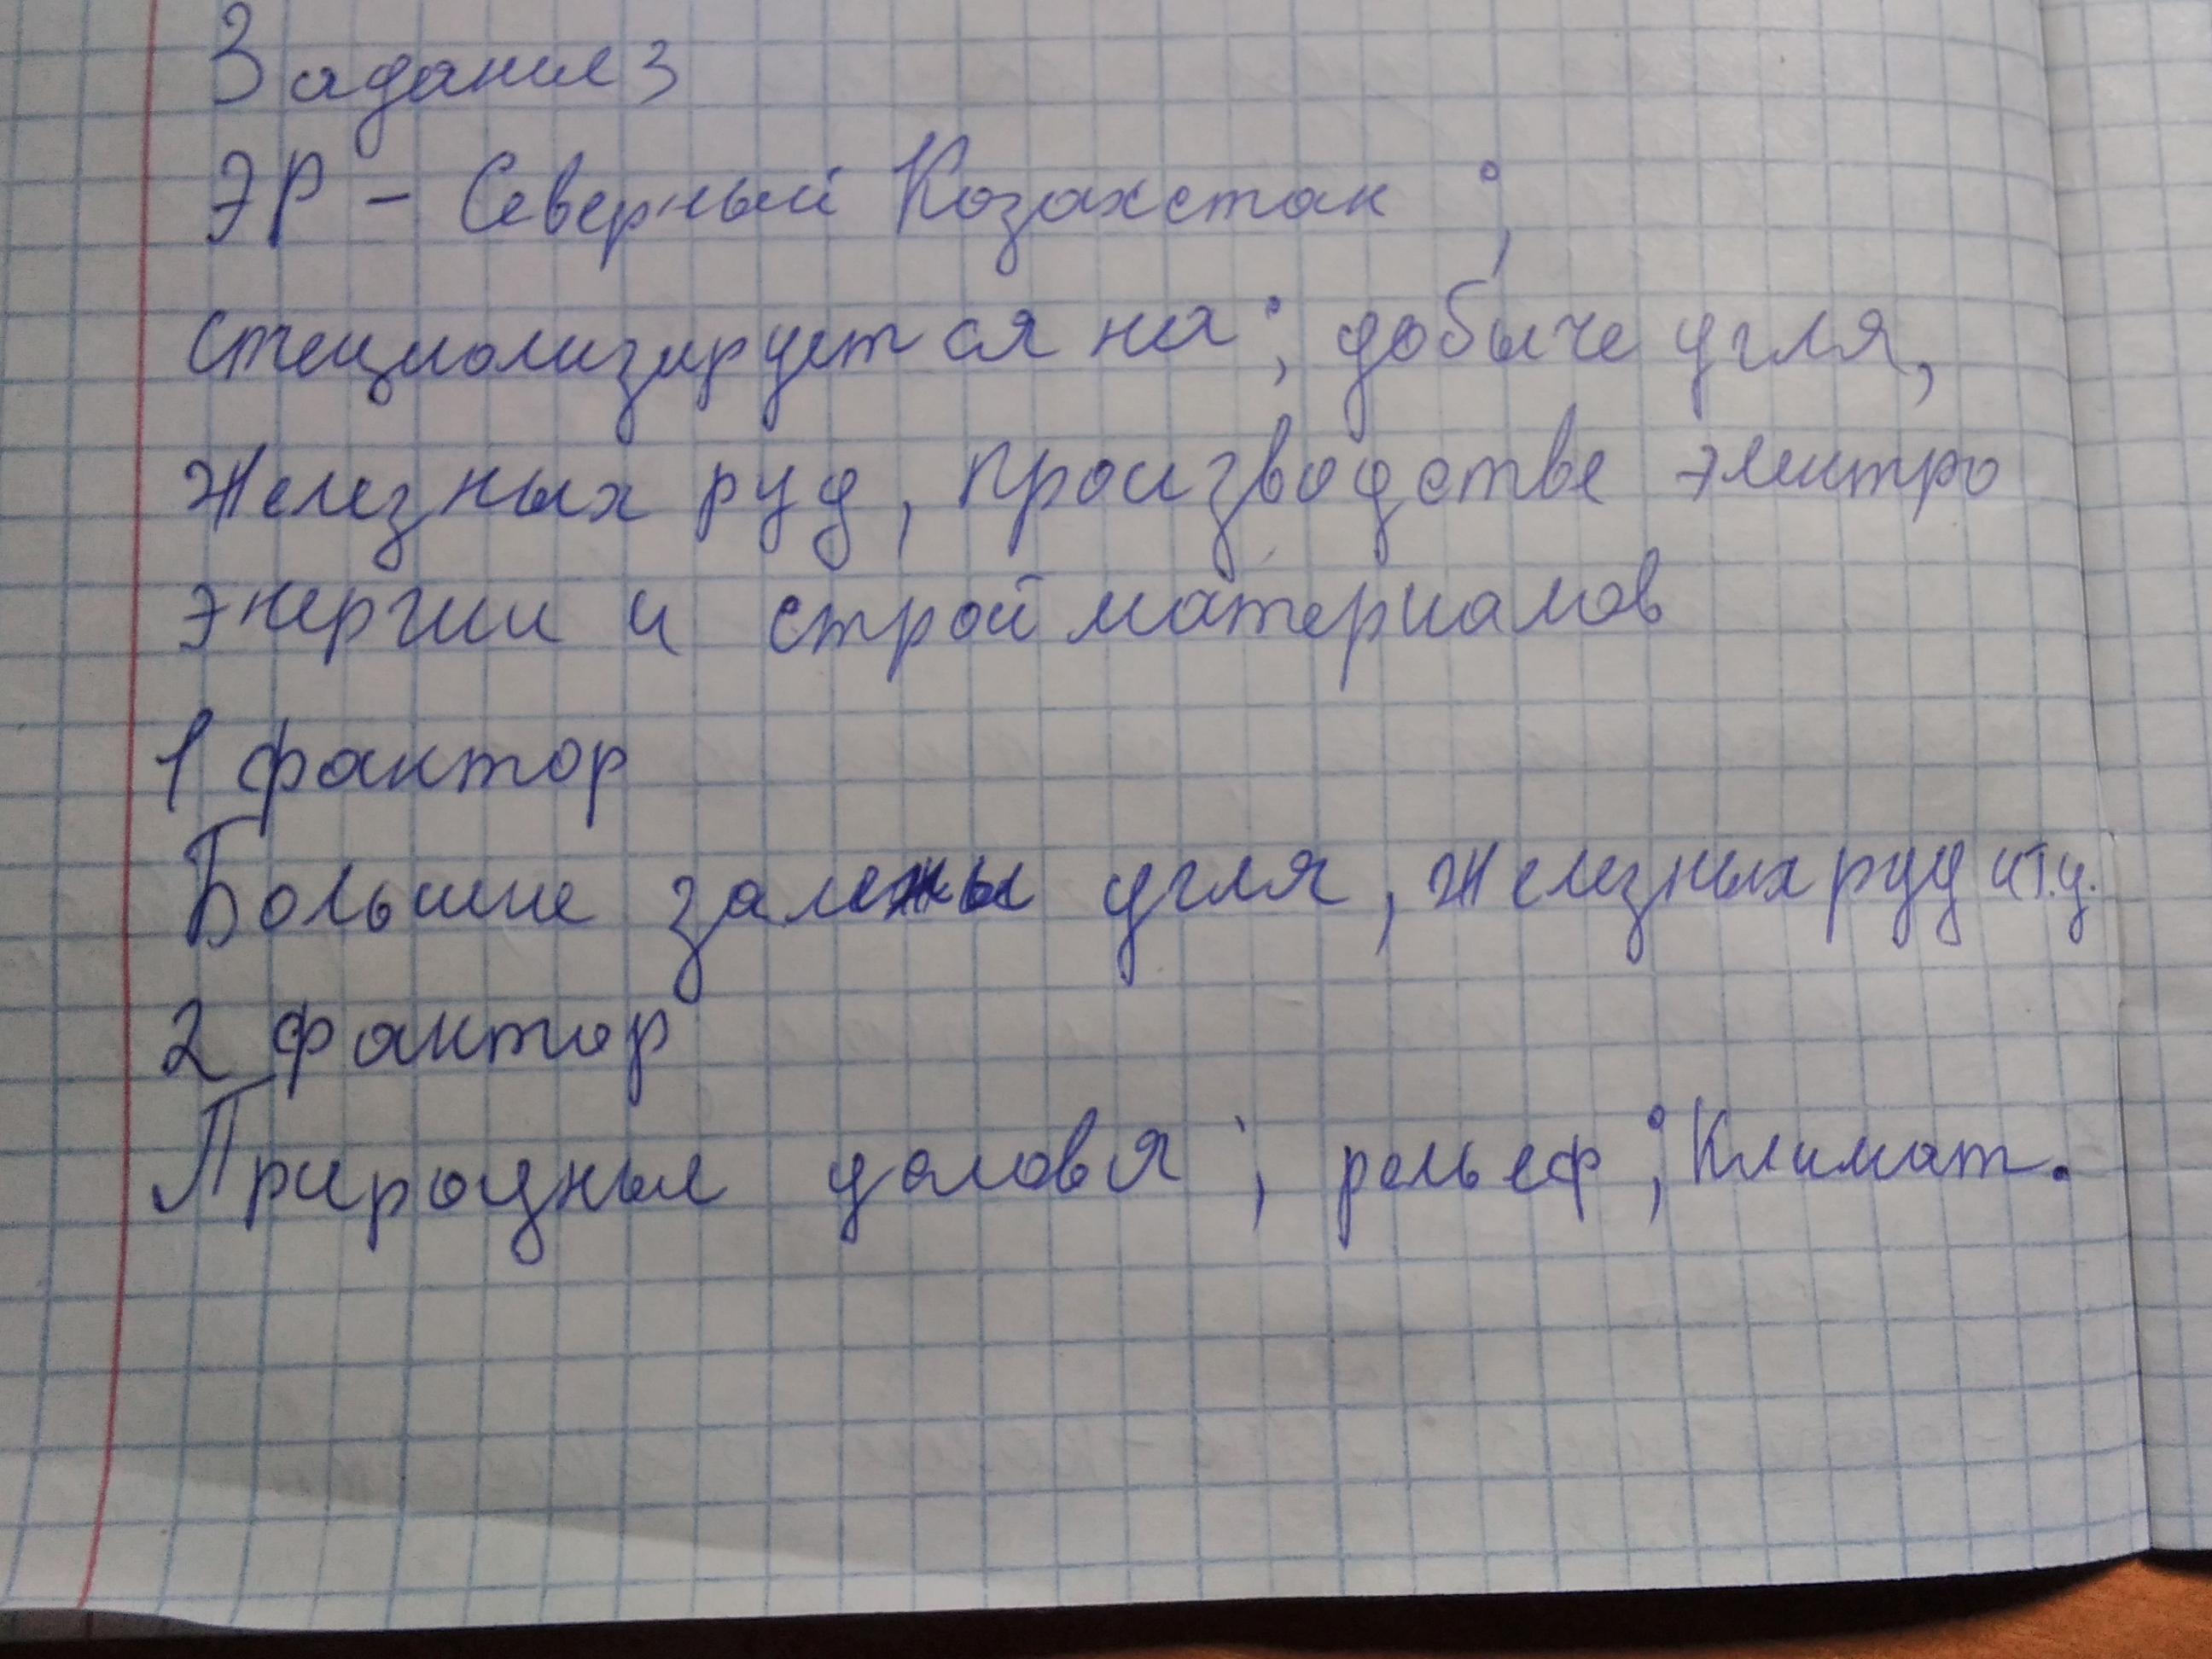 Задание 3
ЭР - Северный Козахстан ;
специолизируется на ; добыче угля,
Железных руд, производстве электро
энергии и строй материалов
1 фактор
Большие залежы угля, Железных руд и т.д.
2 фактор
Природные условя ; рельеф ; Климат.